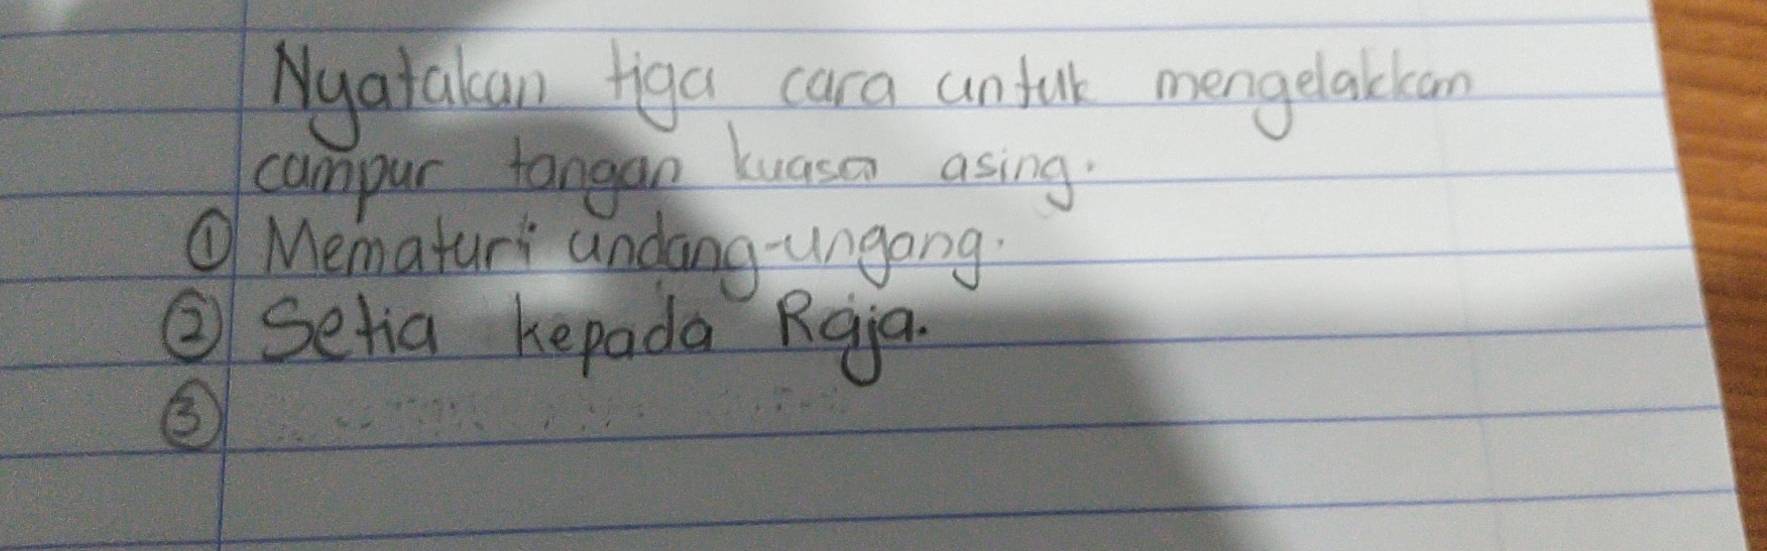 Nyatakan tiga cara untuk mengelakkan
campur tangan kuasa asing.
① Mematuri undang-ungang.
② Setia kepada Raja.
③